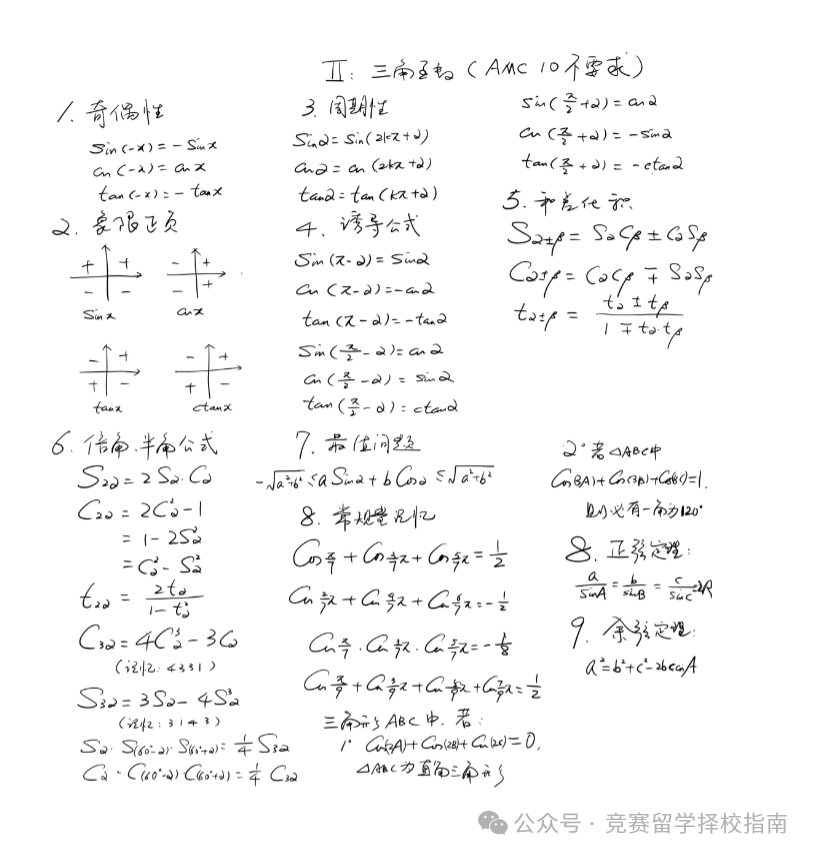 II: 三角函数 (AMC 10不要求)
1. 奇偶性
sin(-x) = -sinx
cos(-x) = cosx
tan(-x) = -tanx
2. 象限正负
+ +
- -
sinx
- +
- +
cosx
- +
+ -
tanx
- +
+ -
ctanx
3. 周期性
sinα = sin(2kπ+α)
cosα = cos(2kπ+α)
tanα = tan(kπ+α)
4. 诱导公式
sin(π-α) = sinα
cos(π-α) = -cosα
tan(π-α) = -tanα
sin(π/2-α) = cosα
cos(π/2-α) = sinα
tan(π/2-α) = ctanα
sin(π/2+α) = cosα
cos(π/2+α) = -sinα
tan(π/2+α) = -ctanα
5. 和差化积
Sα±β = SαCβ ± CαSβ
Cα±β = CαCβ ∓ SαSβ
tα±β = (tα ± tβ)/(1 ∓ tα·tβ)
6. 倍角、半角公式
S2α = 2Sα·Cα
C2α = 2C²α - 1
= 1 - 2S²α
= C²α - S²α
t2α = 2tα/(1-t²α)
C3α = 4C³α - 3Cα
(记忆: 4331)
S3α = 3Sα - 4S³α
(记忆: 3143)
Sα·S(60°-α)·S(60°+α) = 1/4 S3α
Cα·C(60°-α)·C(60°+α) = 1/4 C3α
7. 最值问题
-√(a²+b²) ≤ a Sinα + b Cosα ≤ √(a²+b²)
8. 常规量记忆
Cos π/7 + Cos 3/7π + Cos 5/7π = 1/2
Cos 2/7π + Cos 4/7π + Cos 6/7π = -1/2
Cos π/7 · Cos 3/7π · Cos 5/7π = -1/8
Cos π/9 + Cos 3/9π + Cos 5/9π + Cos 7/9π = 1/2
三角形ABC中, 若:
1° Cos(2A) + Cos(2B) + Cos(2C) = 0,
△ABC为直角三角形
2° 若△ABC中
Cos(3A) + Cos(3B) + Cos(3C) = 1,
则必有一角为120°
8. 正弦定理:
a/sinA = b/sinB = c/sinC = 2R
9. 余弦定理:
a² = b² + c² - 2bccosA
公众号 · 竞赛留学择校指南